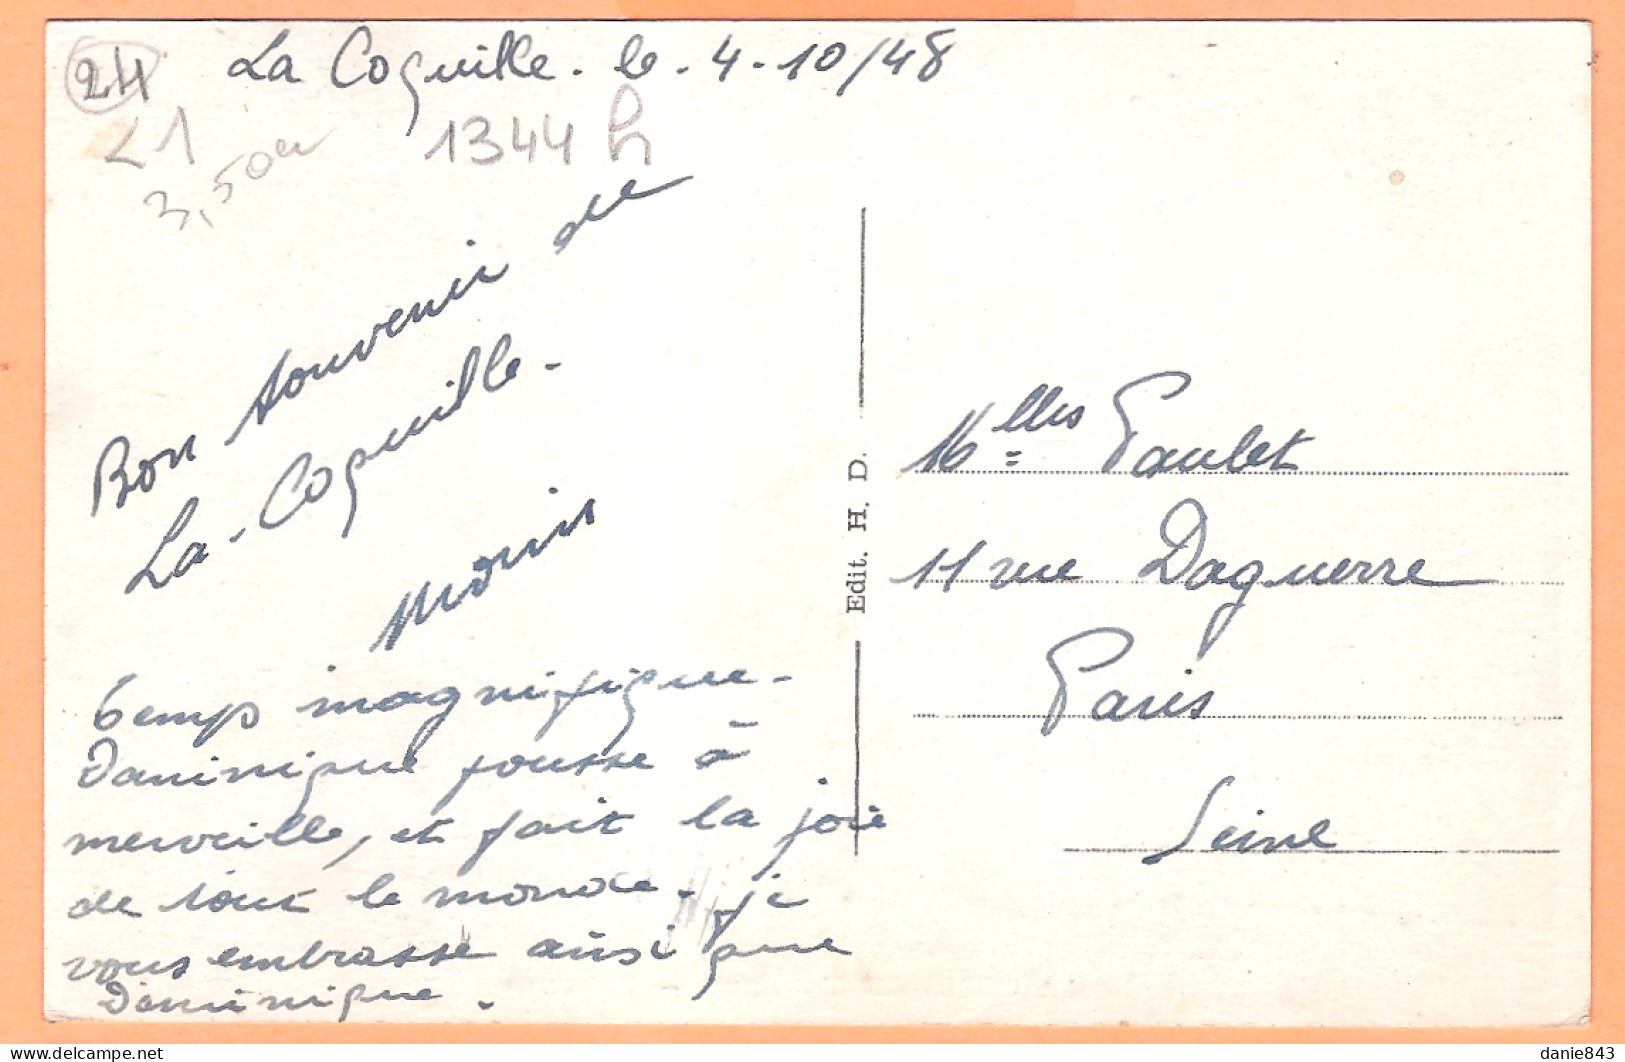 24 La Coquille. le. 4.10/48
1344 h
21
3,50
Bon souvenir de
La-Coquille.
Temp magnifique.
Dominique pousse à
merveille, et fait la joie
de tout le monde. je
vous embrasse ainsi que
Dominique.
Edit. H. D.
Mlles Paulet
11 rue Daguerre
Paris
Seine
danie843